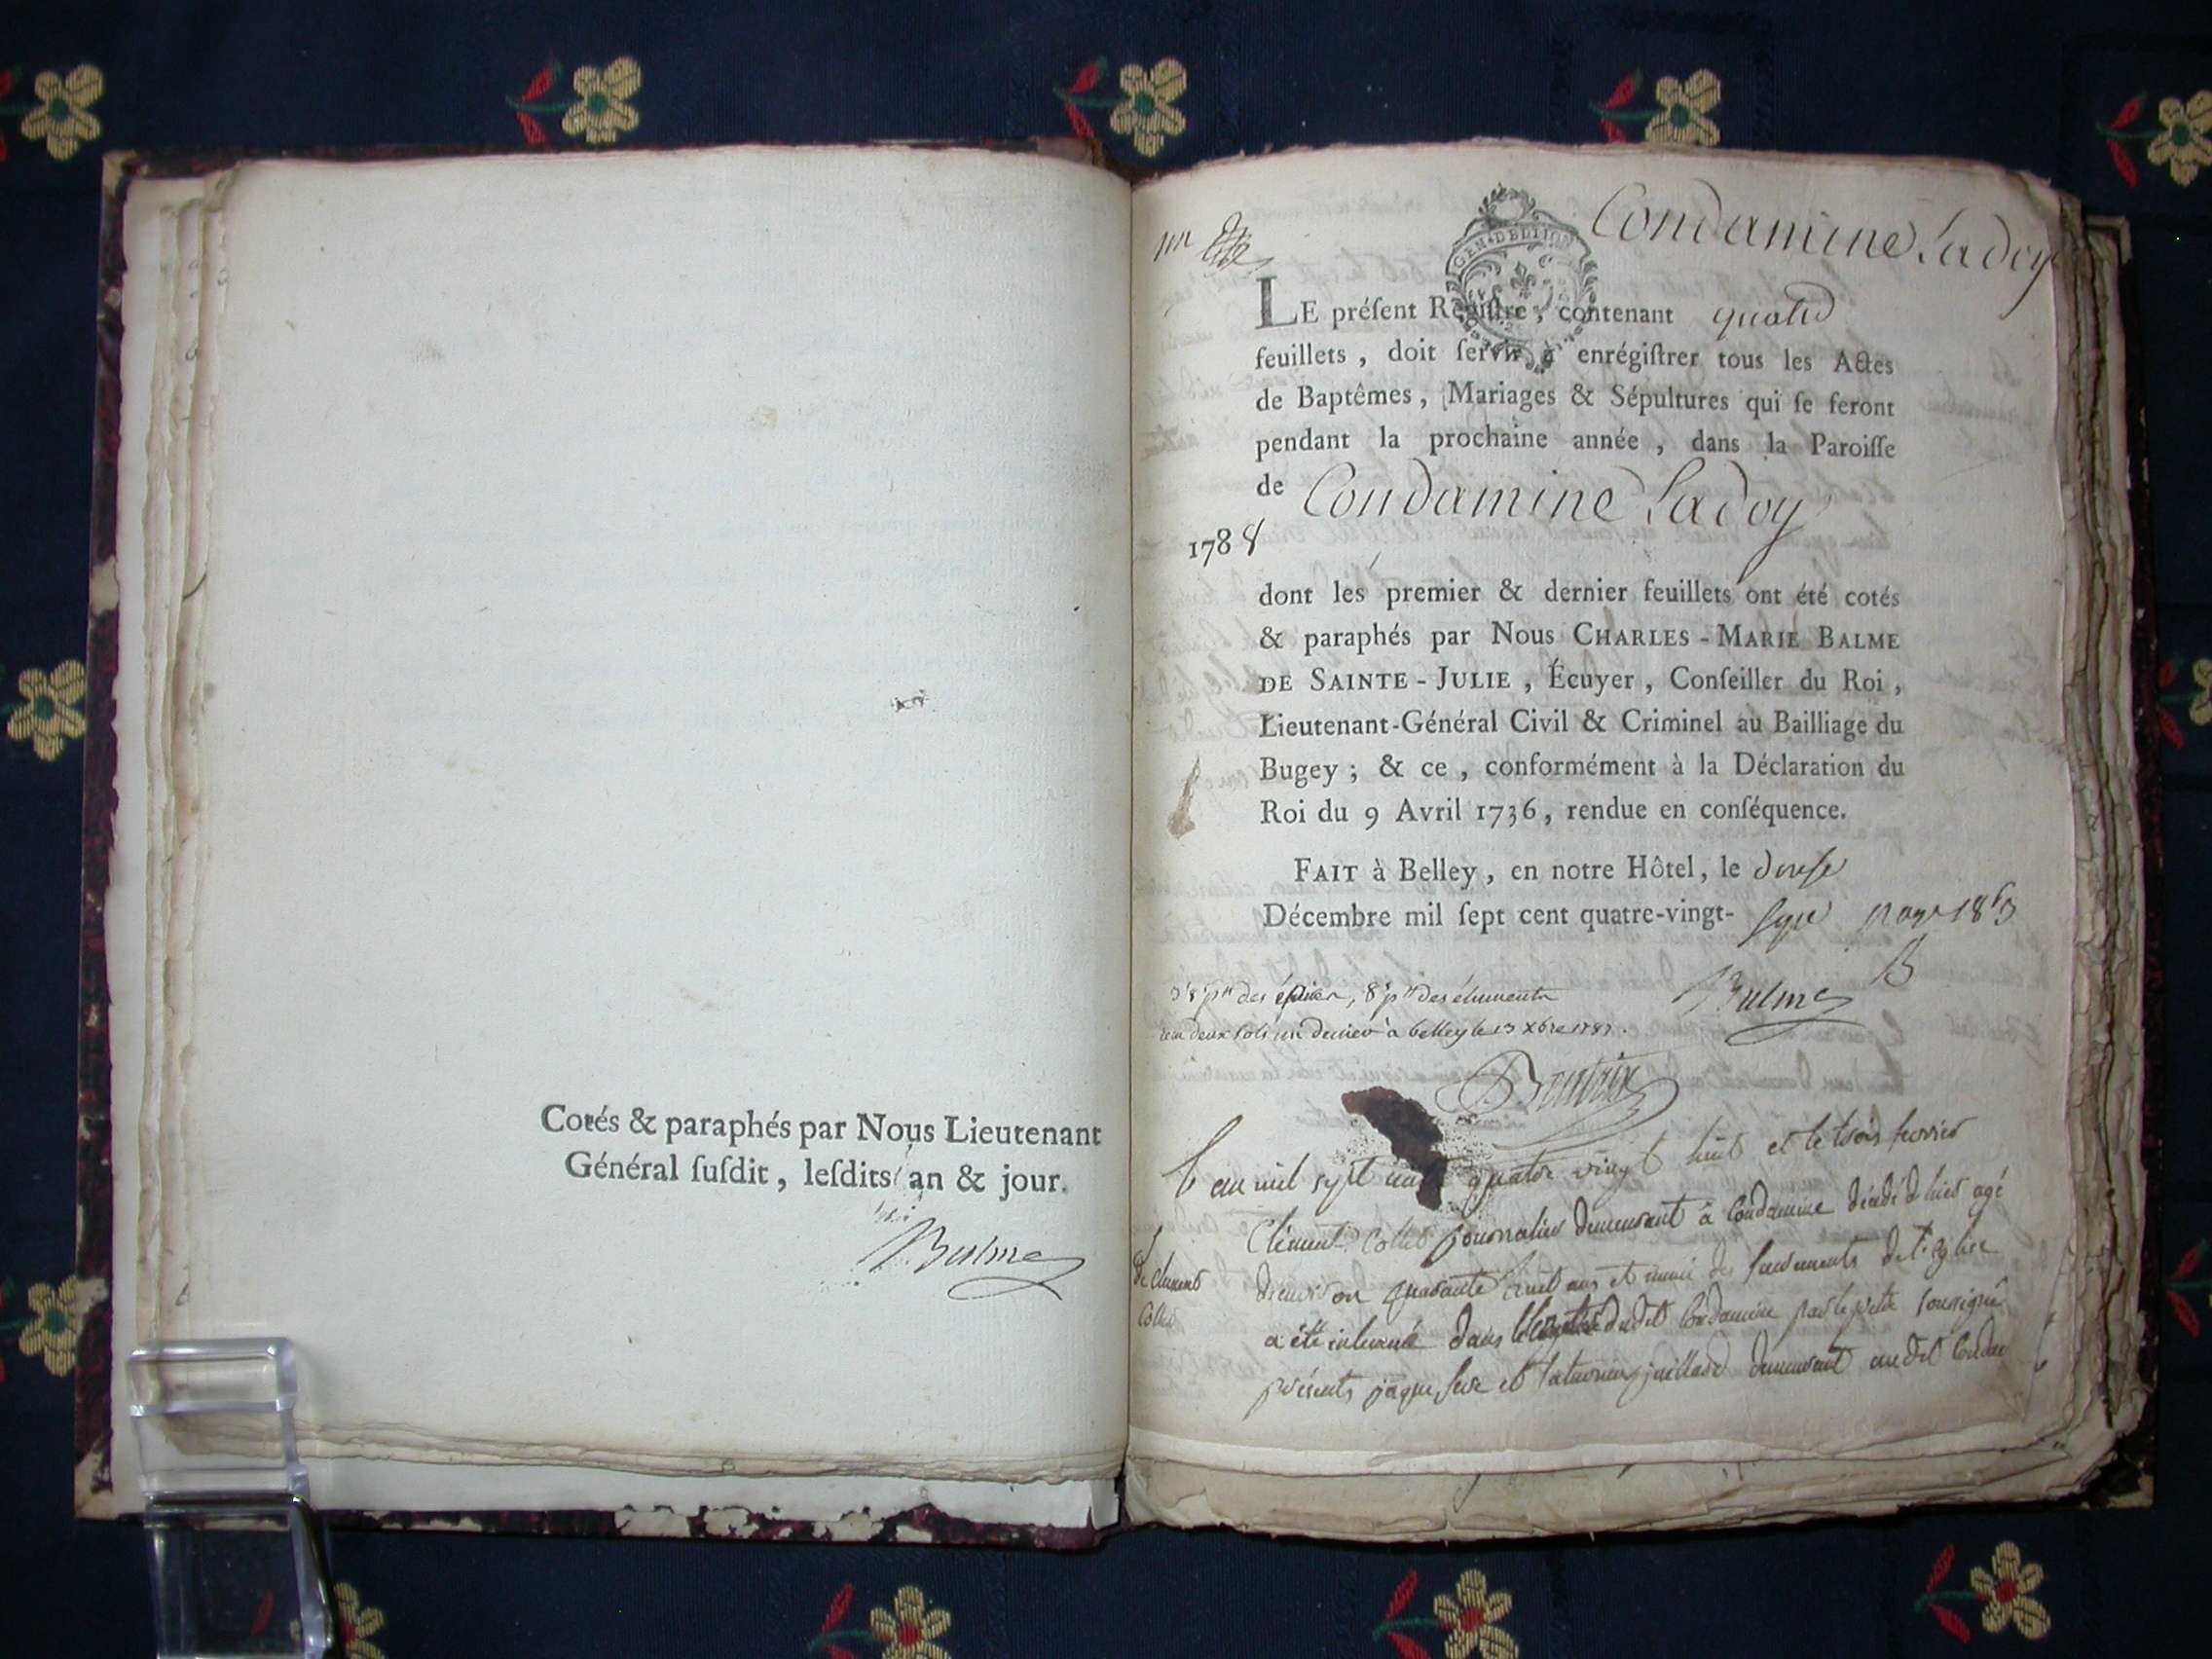 Cotés & paraphés par Nous Lieutenant
Général ſuſdit, leſdits an & jour.
Balme
Condamine Ladoy
GEN. DE DIJON
LE préſent Regiſtre, contenant quatre
feuillets, doit ſervir à enrégiſtrer tous les Actes
de Baptêmes, Mariages & Sépultures qui ſe feront
pendant la prochaine année, dans la Paroiſſe
de Condamine Ladoy
1788
dont les premier & dernier feuillets ont été cotés
& paraphés par Nous CHARLES-MARIE BALME
DE SAINTE-JULIE, Écuyer, Conſeiller du Roi,
Lieutenant-Général Civil & Criminel au Bailliage du
Bugey; & ce, conformément à la Déclaration du
Roi du 9 Avril 1736, rendue en conſéquence.
FAIT à Belley, en notre Hôtel, le douſe
Décembre mil ſept cent quatre-vingt- ſept
Balme
deux sols un denier à belley le 13 xbre 1787.
L'an mil sept cent quatre vingt huit et le trois fevrier
Clément Collet journalier demeurant à Condamine décédé d'hier agé
d'environ quarante huit ans et muni des sacrements de l'Eglise
a été inhumé dans le cimetiere dudit Condamine par le prêtre soussigné
de Clement
Collet
présents jaque et juillard demeurant audit